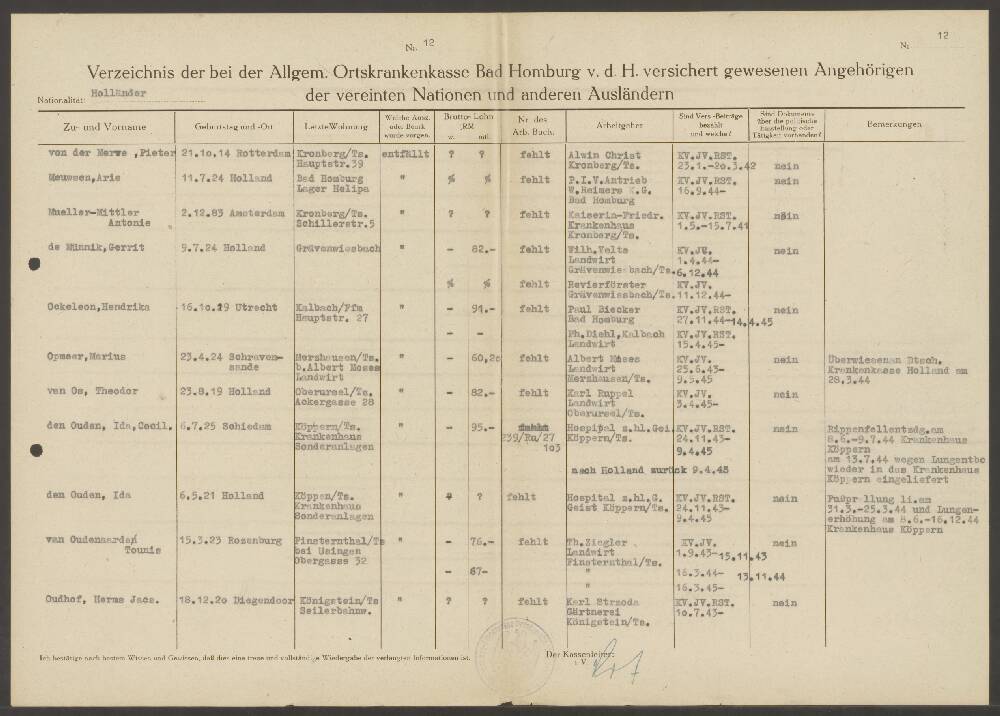 Nr. 12
Nr. 12
Verzeichnis der bei der Allgem. Ortskrankenkasse Bad Homburg v. d. H. versichert gewesenen Angehörigen
Nationalität: Holländer
der vereinten Nationen und anderen Ausländern
Zu- und Vorname
Geburtstag und -Ort
Letzte Wohnung
Welche Ausz. oder Beurk. wurde vorgen.
Brutto-Lohn RM
w. mtl.
Nr. des Arb. Buch.
Arbeitgeber
Sind Vers.-Beiträge bezahlt und welche?
Sind Dokumente über die politische Einstellung oder Tätigkeit vorhanden?
Bemerkungen
von der Merwe ,Pieter 21.10.14 Rotterdam Kronberg/Ts. entfällt ? ? fehlt Alwin Christ KV.JV.RST.
Hauptstr.39 Kronberg/Ts. 23.1.-20.3.42 nein
Meuwsen,Arie 11.7.24 Holland Bad Homburg " % % fehlt P.I.V.Antrieb KV.JV.RST. nein
Lager Helipa W.Reimers K.G. 16.9.44-
Bad Homburg
Mueller-Mittler 2.12.83 Amsterdam Kronberg/Ts. " ? ? fehlt Kaiserin-Friedr. KV.JV.RST. nein
Antonie Schillerstr.5 Krankenhaus 1.5.-15.7.41
Kronberg/Ts.
de Minnik,Gerrit 9.7.24 Holland Grävenwiesbach " - 82.- fehlt Wilh.Velte KV.JV. nein
Landwirt 1.4.44-
Grävenwiesbach/Ts. 6.12.44
% % fehlt Revierförster KV.JV.
Grävenwiesbach/Ts. 11.12.44-
Ockeleon,Hendrika 16.10.19 Utrecht Kalbach/Ffm " - 91.- fehlt Paul Biecker KV.JV.RST. nein
Hauptstr. 27 Bad Homburg 27.11.44-14.4.45
- - Ph.Diehl,Kalbach KV.JV.RST.
Landwirt 15.4.45-
Opmeer,Marius 23.4.24 Schraven- Mershausen/Ts. " - 60,20 fehlt Albert Moses KV.JV. nein Überwiesenan Dtsch.
sande b.Albert Moses Landwirt 25.6.43- Krankenkasse Holland am
Landwirt Mershausen/Ts. 9.5.45 28.3.44
van Os, Theodor 23.8.19 Holland Oberursel/Ts. " - 82.- fehlt Karl Ruppel KV.JV. nein
Ackergasse 28 Landwirt 3.4.45-
Oberursel/Ts.
den Ouden, Ida,Cecil. 6.7.25 Schiedam Köppern/Ts. " - 95.- Hospital z.hl.Gei. KV.JV.RST. nein Rippenfellentzdg.am
Krankenhaus 239/Ru/27 Köppern/Ts. 24.11.43- 8.6.-9.7.44 Krankenhaus
Sonderanlagen 103 9.4.45 Köppern
am 13.7.44 wegen Lungentbc
nach Holland zurück 9.4.45 wieder in das Krankenhaus
Köppern eingeliefert
den Ouden, Ida 6.5.21 Holland Köppen/Ts. " ? fehlt Hospital z.hl.G. KV.JV.RST. nein Fußprellung li.am
Krankenhaus Geist Köppern/Ts. 24.11.43- 31.3.-25.3.44 und Lungen-
Sonderanlagen 9.4.45 erhöhung am 8.6.-16.12.44
Krankenhaus Köppern
van Oudenaarden 15.3.23 Rozenburg Finsternthal/Ts " - 76.- fehlt Th.Ziegler KV.JV. nein
Tounis bei Usingen Landwirt 1.9.43-15.11.43
Obergasse 32 Finsternthal/Ts.
- 67- " 16.3.44- 13.11.44
" 16.3.45-
Oudhof, Herms Jacs. 18.12.20 Diegendoor Königstein/Ts " ? ? fehlt Karl Strzoda KV.JV.RST. nein
Seilerbahnw. Gärtnerei 10.7.43-
Königstein/Ts.
Ich bestätige nach bestem Wissen und Gewissen, daß dies eine treue und vollständige Wiedergabe der verlangten Informationen ist.
Der Kassenleiter:
i.V.